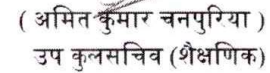 ( अमित कुमार चनपुरिया )
उप कुलसचिव (शैक्षणिक)